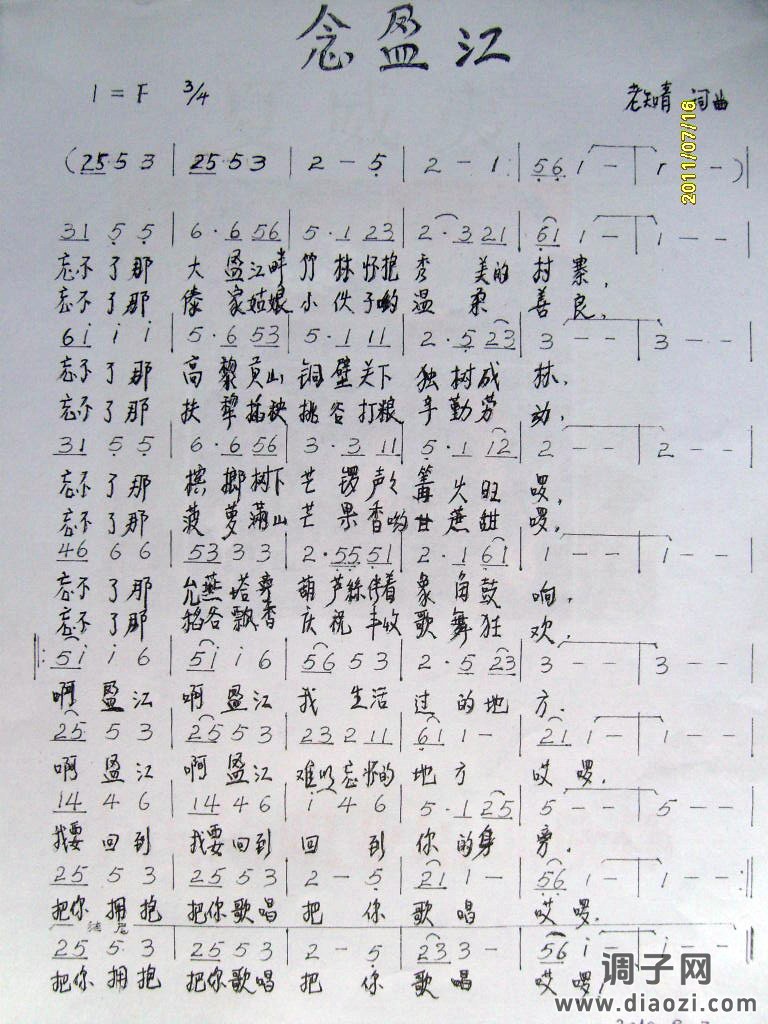 念盈江
1=F 3/4 老知青 词曲
2011/07/16
(25·53 | 25·53 | 2 - 5 | 2 - 1 | 56 1 - | 1 - - )|
31 5 5 | 6·6 56 | 5·1 23 | 2·3 21 | 61 1 - | 1 - - |
忘不了那 大盈江畔 竹林怀抱 秀美的村寨,
忘不了那 傣家姑娘 小伙子哟 温柔善良,
61 i i | 5·6 53 | 5·1 11 | 2·5 23 | 3 - - | 3 - - |
忘不了那 高黎贡山 铜壁关下 独树成林,
忘不了那 扶犁插秧 挑谷打粮 辛勤劳动,
31 5 5 | 6·6 56 | 3·3 11 | 5·1 12 | 2 - - | 2 - - |
忘不了那 槟榔树下 芒锣声声 篝火旺啰,
忘不了那 菠萝满山 芒果香哟 甘蔗甜啰,
46 6 6 | 53 3 3 | 2·55 51 | 2·1 61 | 1 - - | 1 - - |
忘不了那 允燕塔 葫芦丝伴着 象角鼓响,
忘不了那 稻谷飘香 庆祝丰收 歌舞狂欢,
‖: 51 i 6 | 51 i 6 | 56 5 3 | 2·5 23 | 3 - - | 3 - - |
啊盈江 啊盈江 我生活过的地方.
25 5 3 | 25 5 3 | 23 2 11 | 61 1 - | 21 1 - | 1 - - |
啊盈江 啊盈江 难以忘怀的地方 哎啰.
14 4 6 | 14 4 6 | i 4 6 | 5·1 25 | 5 - - | 5 - - |
我要回到 我要回到 回到你的身旁.
25 5 3 | 25 5 3 | 2 - 5 | 21 1 - | 56 1 - | 1 - - :‖
把你拥抱 把你歌唱 把你歌唱 哎啰.
结尾
25 5·3 | 25 5 3 | 2 - 5 | 23 3 - | 56 i - | i - - ‖
把你拥抱 把你歌唱 把你歌唱 哎啰!
调子网
www.diaozi.com